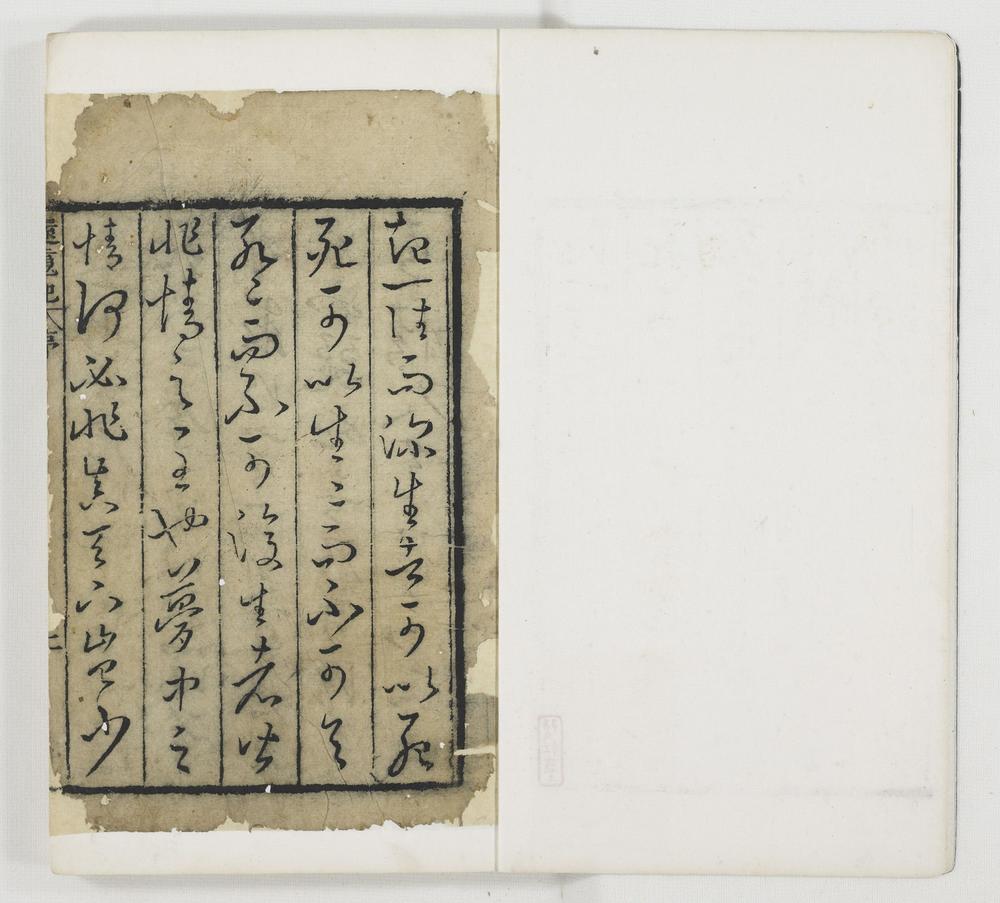 起一往而深生者可以死
死可以生〻而不可與
死〻而不可復生者皆
非情之至也夢中之
情何必非真天下豈少
還魂記